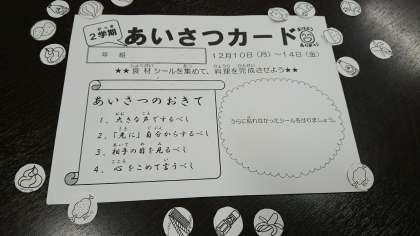 2学期
あいさつカード
年 組
12月10日（月）～14日（金）
★★食材シールを集めて、料理を完成させよう★★
あいさつのおきて
1、大きな声でするべし
2、「先に」自分からするべし
3、相手の目を見るべし
4、心をこめて言うべし
うらに貼れなかったシールをはりましょう。